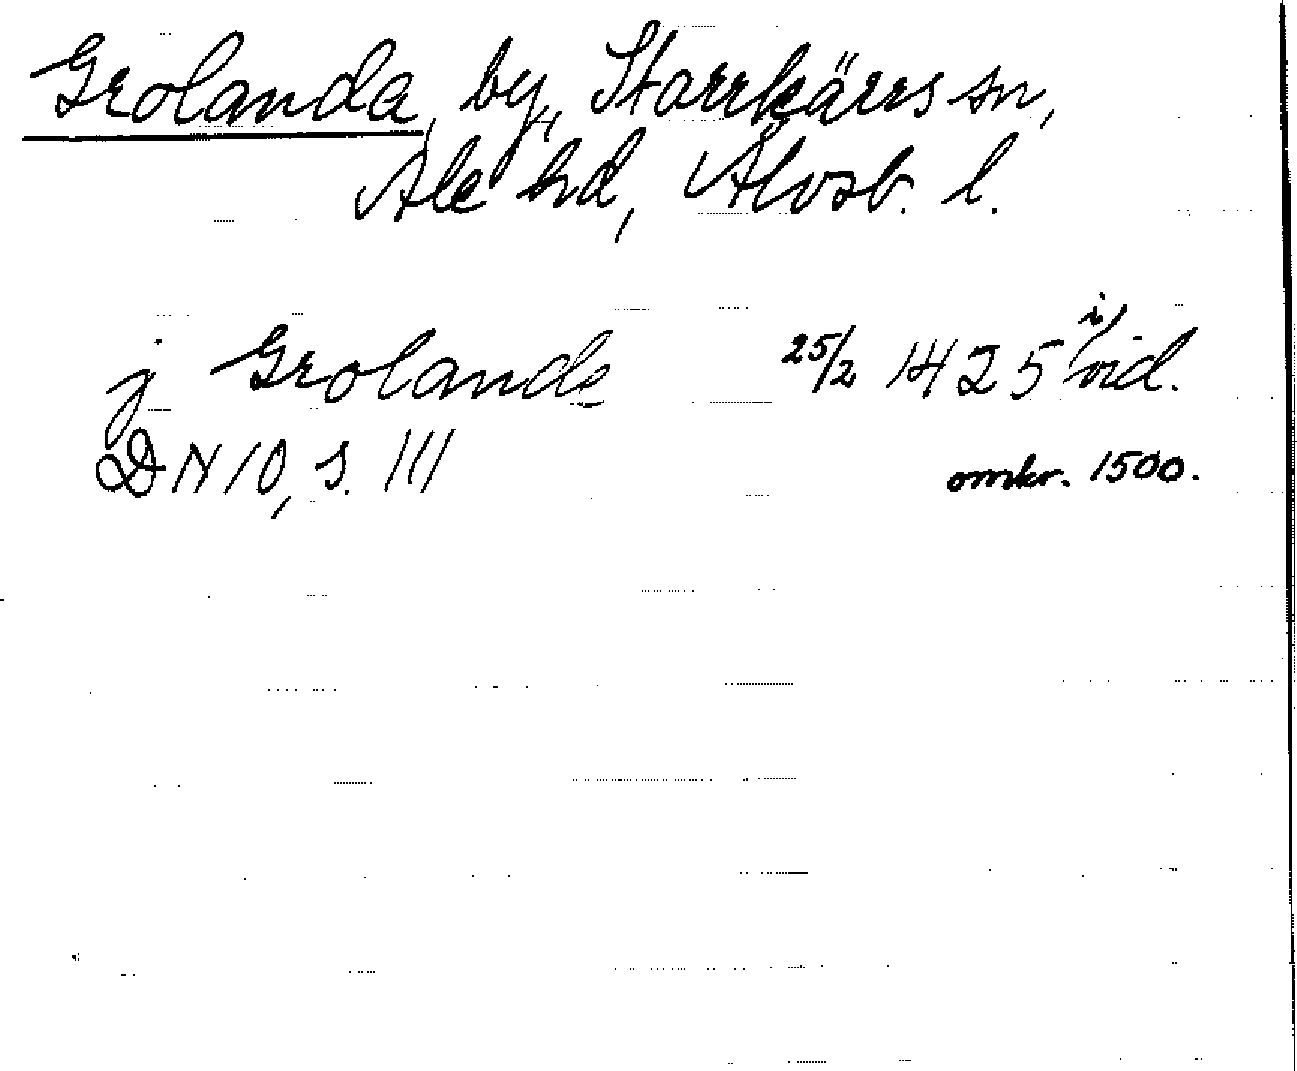 Grolanda, by, Starrkärrs sn,
Ale hd, Älvsb. l.
j Grolanda 25/2 1425 i vid.
DN 10, s. 111 omkr. 1500.